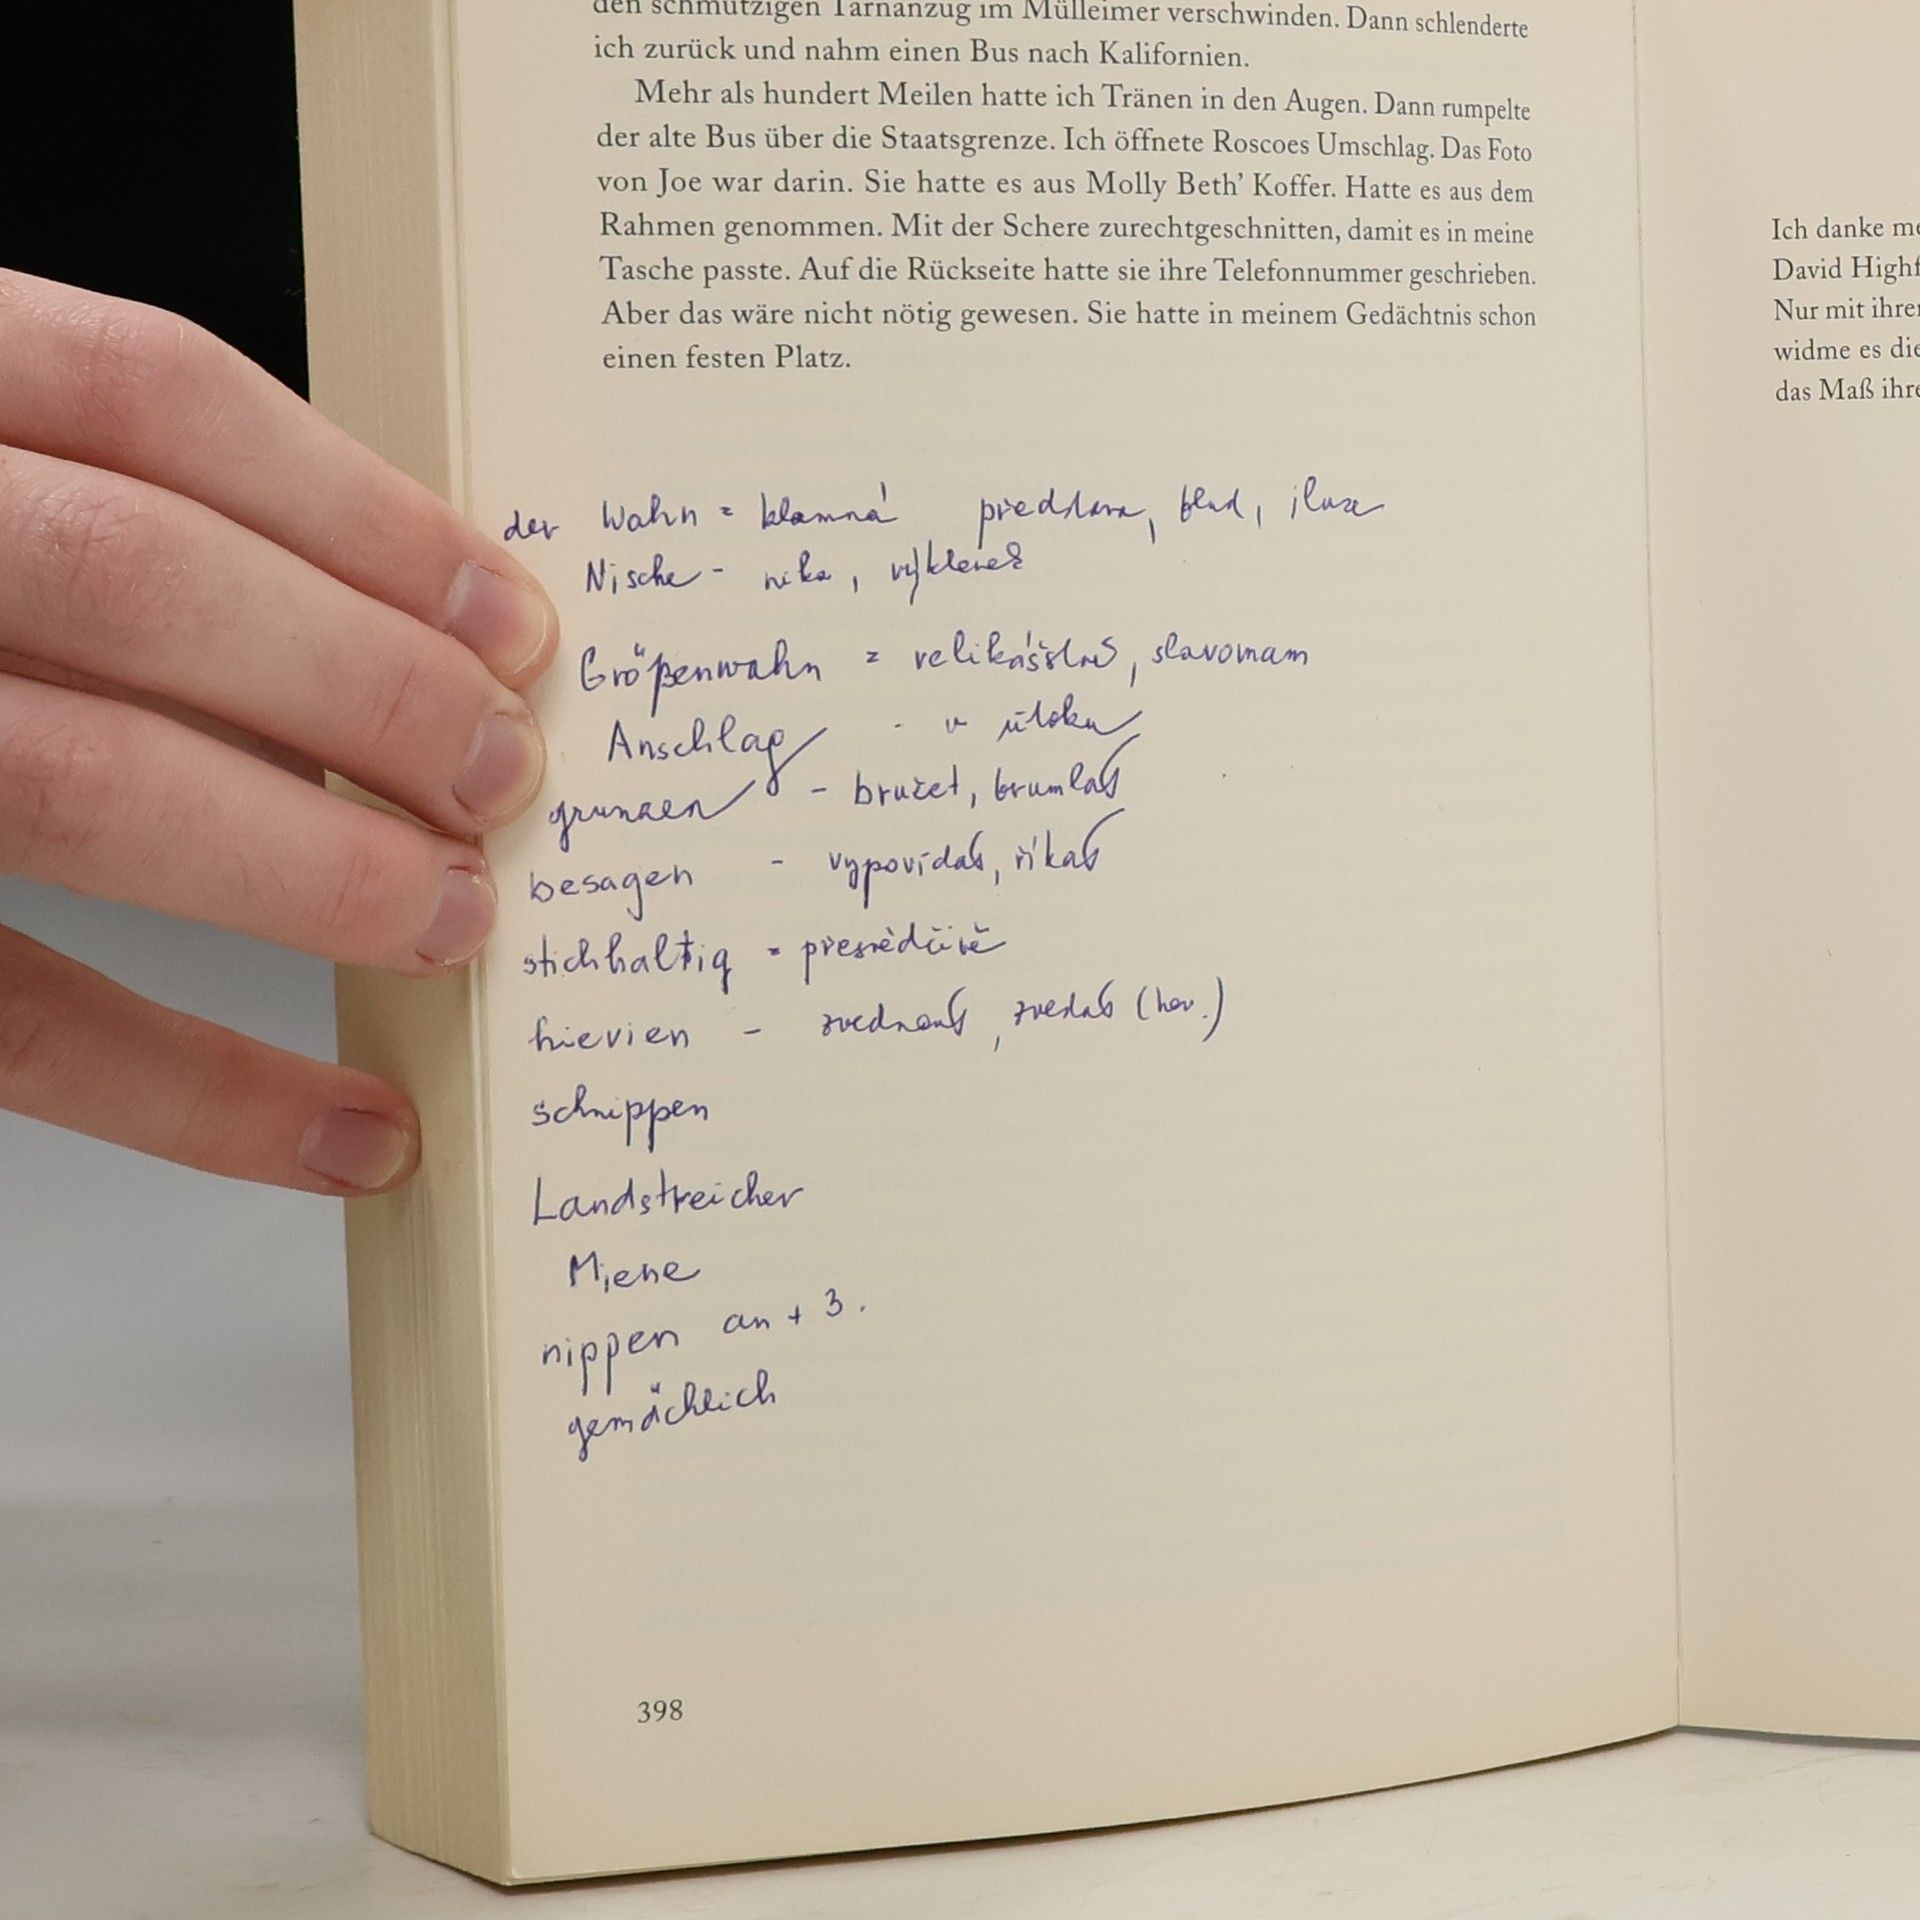 den schmutzigen Tarnanzug im Mülleimer verschwinden. Dann schlenderte
ich zurück und nahm einen Bus nach Kalifornien.
Mehr als hundert Meilen hatte ich Tränen in den Augen. Dann rumpelte
der alte Bus über die Staatsgrenze. Ich öffnete Roscoes Umschlag. Das Foto
von Joe war darin. Sie hatte es aus Molly Beth’ Koffer. Hatte es aus dem
Rahmen genommen. Mit der Schere zurechtgeschnitten, damit es in meine
Tasche passte. Auf die Rückseite hatte sie ihre Telefonnummer geschrieben.
Aber das wäre nicht nötig gewesen. Sie hatte in meinem Gedächtnis schon
einen festen Platz.
der Wahn = klamná představa, blud, iluze
Nische - nika, výklenek
Größenwahn = velikášství, slavomam
Anschlag - v útoku
grunzen - bručet, brumlat
besagen - vypovídat, říkat
stichhaltig = přesvědčivě
hievien - zvednout, zvedat (hov.)
schnippen
Landstreicher
Miene
nippen an + 3.
gemächlich
398
Ich danke
David
Nur mit
widme es
das Maß